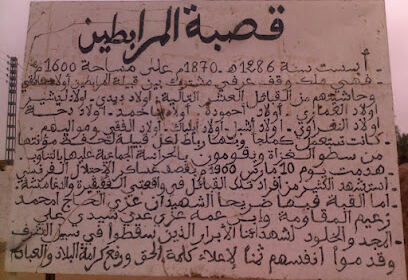 قصبة المرابطين
أسست سنة 1286هـ - 1870م على مساحة 1600م²
فهي ملك وقف عرفي مشترك بين قبيلة المرابطين أولاد
وحاشيتهم من القبائل العشر التالية: أولاد ديدي - أولاد البشير
أولاد العماري - أولاد احمودة - أولاد باحمد - أولاد نجمة
أولاد النفراوي - أولاد - أولاد - أولاد الفقي ومواليهم
كانت تستعمل كملجأ وبها رباط لكل قبيلة لحفظ مؤنتها
من سطو الغزاة ويقومون بالحراسة الجماعية عليها بالتناوب
هدمت يوم 10 مارس 1900م بقصف عساكر الاحتلال الفرنسي
استشهد الكثير من أفراد تلك القبائل في واقعتي الفقيقرة والدغامشة
أما القبة فبها ضريحا الشهيدان عزي الحاج امحمد
زعيم المقاومة وابن عمه عزي عدي سيدي علي
المجد والخلود لشهدائنا الأبرار الذين سقطوا في سبيل الشرف
وقدموا أنفسهم ثمنا لإعلاء كلمة الحق ورفع كرامة البلاد والعباد